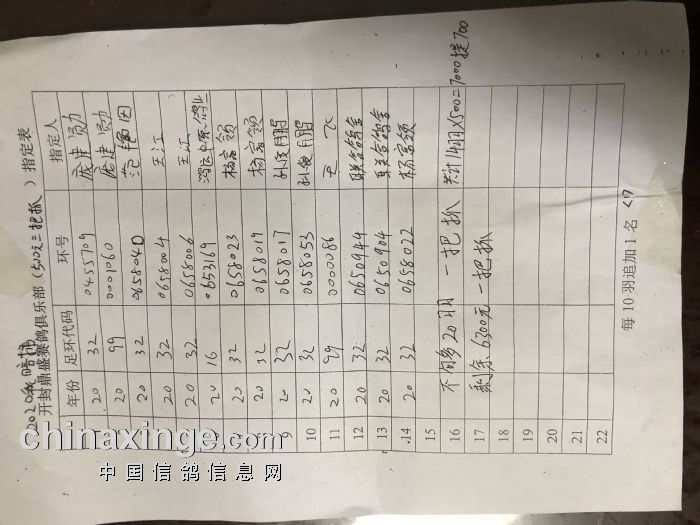 开封鼎盛赛鸽俱乐部（500元二把抓）指定表
年份 足环代码 环号 指定人
20 32 0455709
20 99 0001060
20 32 0658040
20 32 0658004 王江
20 32 0658006 王江
20 16
20 32 0658023 杨富领
20 32 0658019 杨富领
9 20 32 0658017 孙俊鹏
10 20 32 0658053 孙俊鹏
11 20 99 0000086
12 20 32 0650944 联合鸽舍
13 20 32 0650904 联合鸽舍
14 20 32 0658022 杨富领
15
16 不够20羽一把抓 共计14羽X500=7000提700
17 剩余6300元一把抓
18
19
20
21
22
每10羽追加1名
chinaxinge.com
中国信鸽信息网